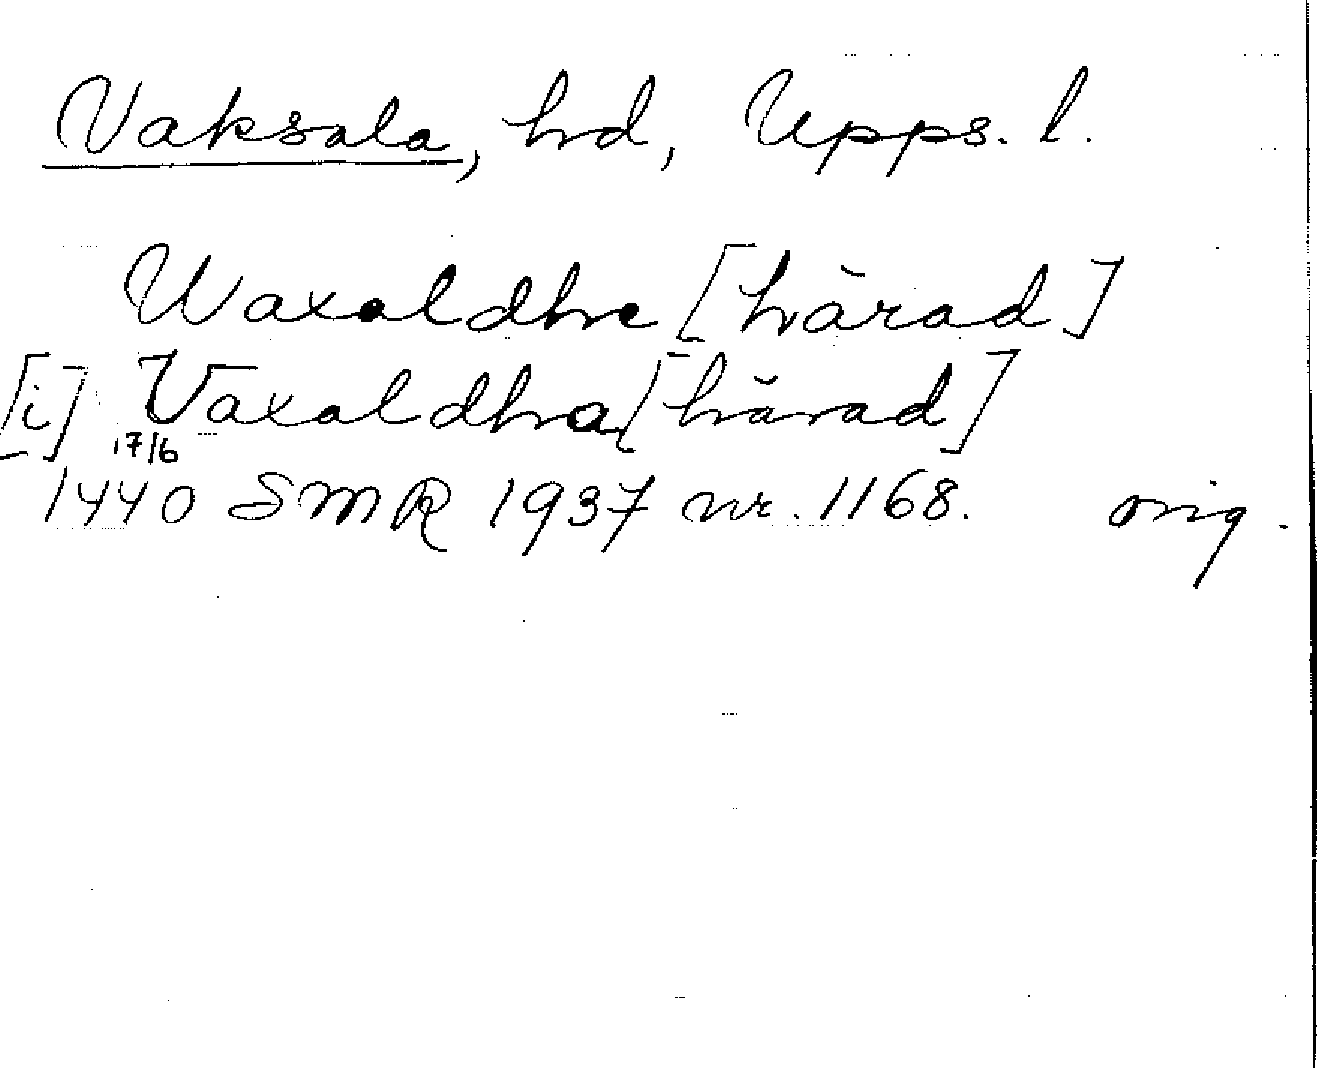 Vaksala, hd, Upps. l.
Waxaldhe [härad]
[i] Vaxaldha [härad]
17/6
1440 SMR 1937 nr. 1168. orig.